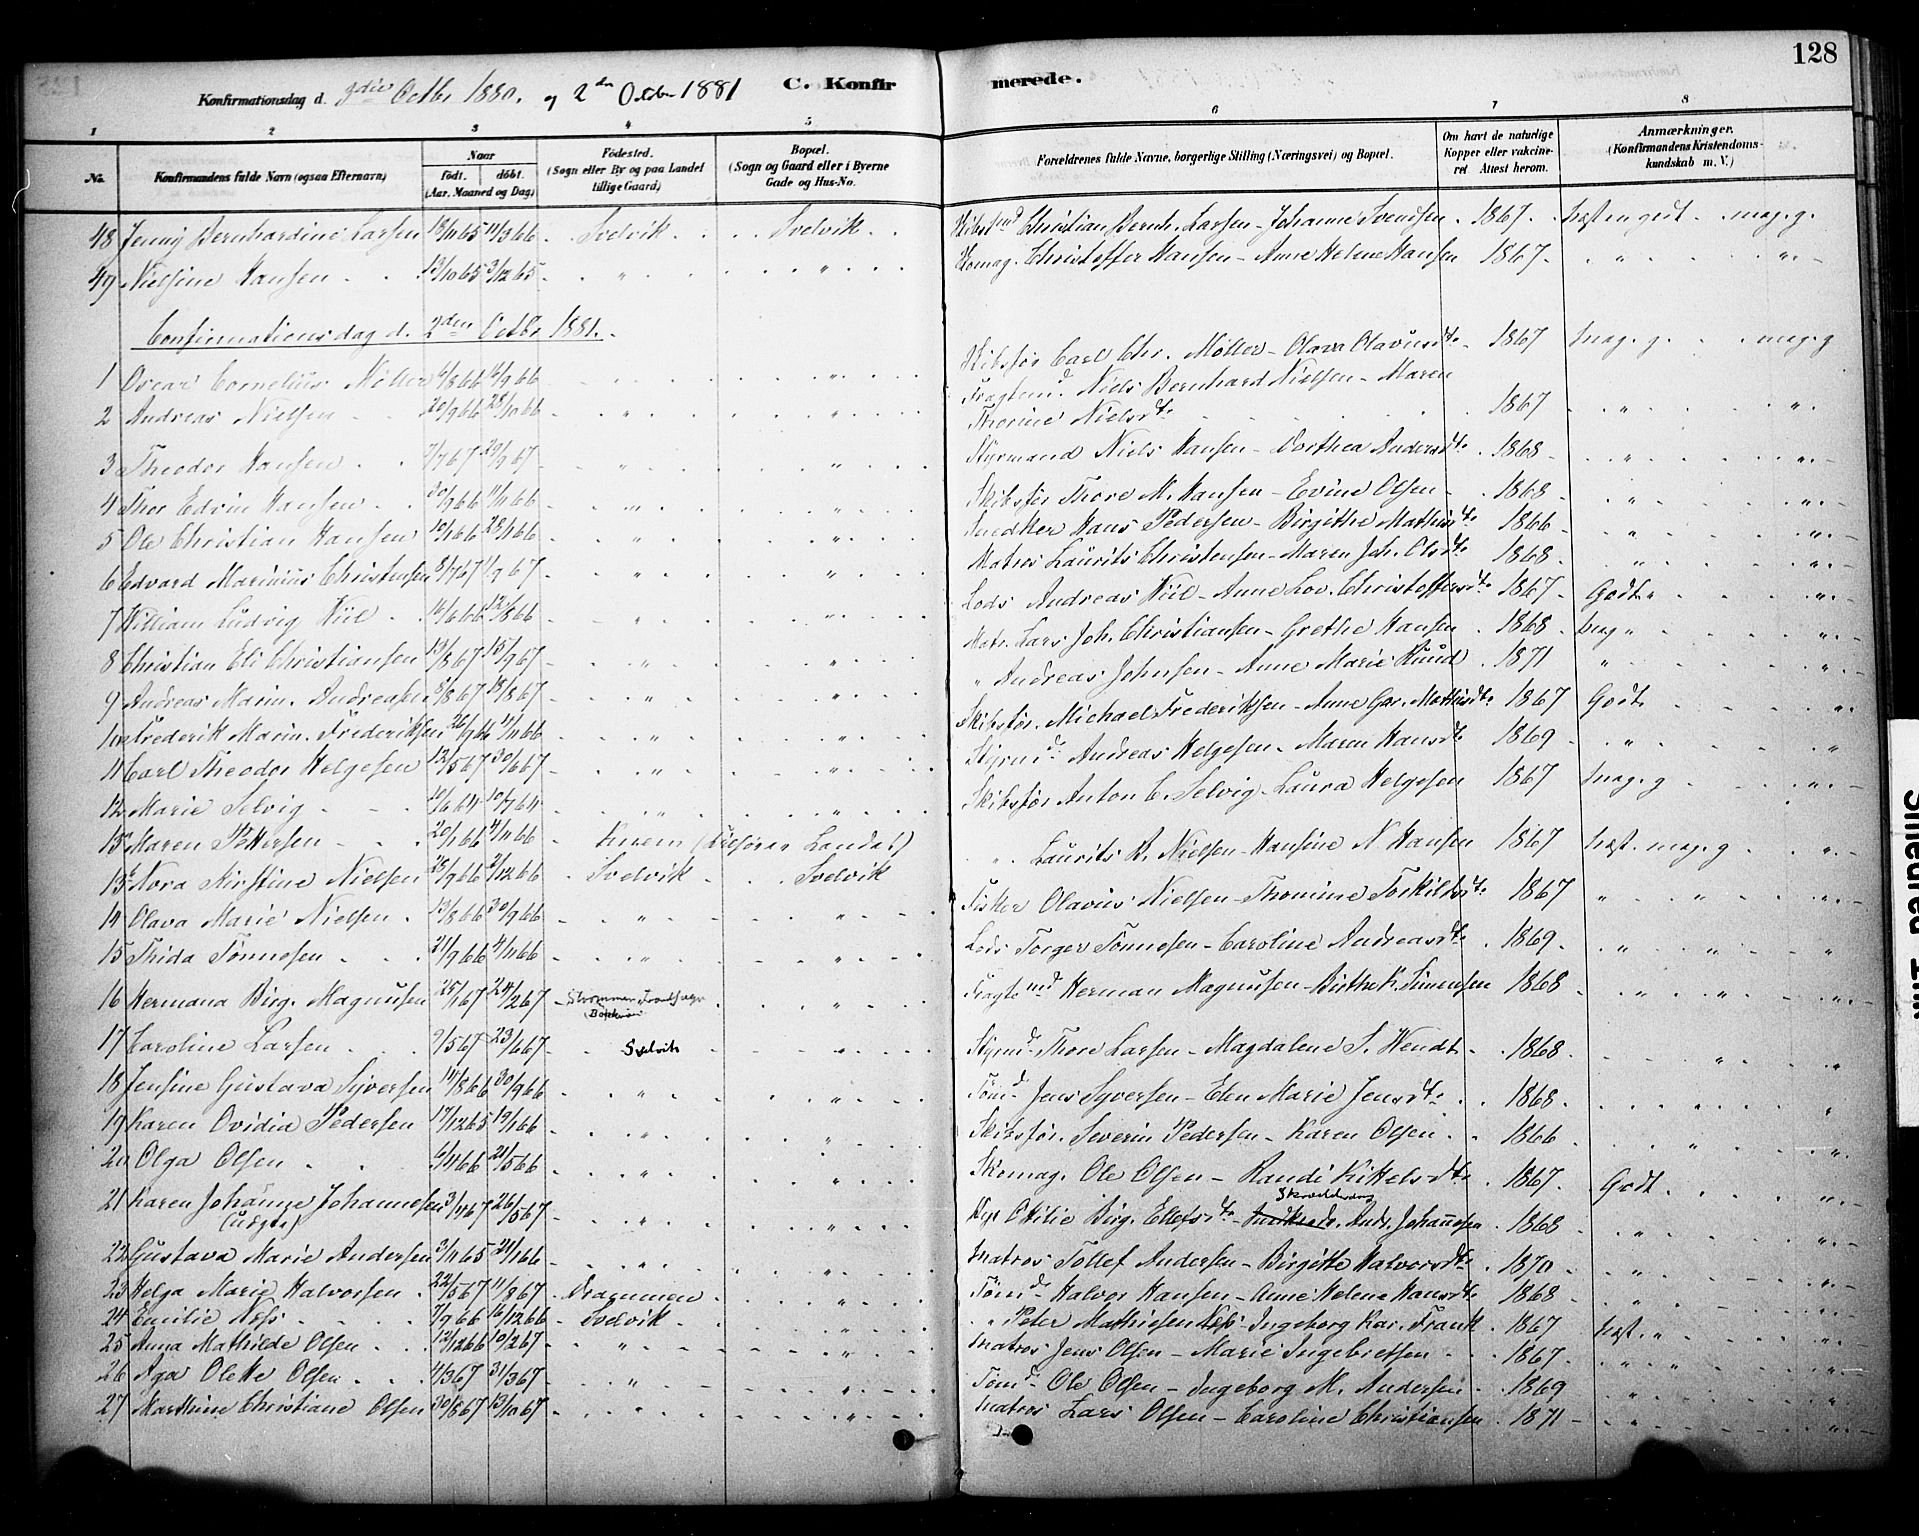 128
Konfirmationsdag d. 3die Octbr 1880. og 2den October 1881 C. Konfirmerede.
1 2 3 4 5 6 7 8
No. Konfirmandens fulde Navn (ogsaa Efternavn) Naar født. døbt. (Aar, Maaned og Dag) Fødested. (Sogn eller By og paa Landet tillige Gaard) Bopæl. (Sogn og Gaard eller i Byerne Gade og Hus-No. Forældrenes fulde Navne, borgerlige Stilling (Næringsvei) og Bopæl. Om havt de naturlige Kopper eller vakcineret Attest herom. Anmærkninger. (Konfirmandens Kristendomskundskab m. V.)
48 Jenny Bernhardine Larsen 18/11 65 11/3 66 Svelvik Svelvik Skibsmd Christian Bernh. Larsen - Johanne Svendsen 1867 Næsten godt mag. g.
49 Nielsine Hansen 12/10 65 3/12 65 " " Skomag. Christoffer Hansen - Anne Helene Hansen 1867 " "
Confirmationsdag d. 2den Octbr 1881.
1 Oscar Cornelius Møller 6/8 66 16/9 66 " " Skibsfør Carl Chr. Møller - Olava Olavusdtr 1867 mag. g. mag. g
2 Andreas Nielsen 20/9 66 28/10 66 " " Fragtemd Niels Bernhard Nielsen - Maren Thorine Nielsdtr 1867 " "
3 Theodor Hansen 7/7 67 29/9 67 " " Styrmand Niels Hansen - Dorthea Andersdtr 1868 " "
4 Thor Edvin Hansen 30/9 66 11/11 66 " " Skibsfør Thore M. Hansen - Evine Olsen 1868 " "
5 Ole Christian Hansen 10/1 66 28/1 66 " " Snedker Hans Pedersen - Birgithe Mathisdtr 1866 " "
6 Edvard Marinius Christensen 8/7 67 1/9 67 " " Matros Laurits Christensen - Maren Joh. Olsdtr 1868 " "
7 William Ludvig Kiil 16/6 66 12/8 66 " " Lods Andreas Kiil - Anne Lov. Christoffersdtr 1867 Godt "
8 Christian Eli Christiansen 13/8 67 15/9 67 " " Matr. Lars Joh. Christiansen - Grethe Hansen 1868 mag " "
9 Andreas Marin. Andreasen 8/8 67 18/8 67 " " " Andreas Johnsen - Anne Marie Knud 1871 " "
10 Frederik Marin. Frederiksen 26/9 66 11/11 66 " " Skibsfør. Michael Frederiksen - Anne Gar. Mathisdtr 1867 Godt "
11 Carl Theodor Helgesen 12/5 67 30/6 67 " " Styrmd. Andreas Helgesen - Maren Hansdtr 1869 " "
12 Marie Selvig 10/6 64 10/7 64 " " Skibsfør Anton C. Selvig - Laura Helgesen 1867 mag. g "
13 Maren Pettersen 20/1 66 4/11 66
13 Nora Kirstine Nielsen 25/9 66 2/12 66 Svelvik Svelvik " Laurits A. Nielsen - Hansine N Hansen 1867 Næst. mag. g "
14 Olava Marie Nielsen 13/8 66 30/9 66 " " Fisker Olavus Nielsen - Thomine Torkildsdtr 1867 " " "
15 Thida Tønnesen 21/9 66 4/11 66 " " Lods Torger Tønnesen - Caroline Andreasdtr 1869 " " "
16 Hermana Birg. Magnusen 25/1 67 24/2 67 Strømmen " Fragtemd Herman Magnusen - Birthe K. Simensen 1868 " " "
17 Caroline Larsen 9/5 67 23/6 67 Svelvik " Styrmd. Thore Larsen - Magdalene S. Wendt 1868 " "
18 Jensine Gustava Syversen 11/8 66 30/9 66 " " Tømd. Jens Syversen - Elen Marie Jensdtr 1868 " "
19 Karen Ovidia Pedersen 17/12 65 19/1 66 " " Skibsfør. Severin Pedersen - Karen Olsen 1866 " "
20 Olga Olsen 6/4 66 21/5 66 " " Skomag. Ole Olsen - Randi Kittelsdtr 1867 Godt "
21 Karen Johanne Johannesen (uægte) 3/4 67 26/5 67 " " Pige Otilie Birg. Ellefsdtr - Skrædder Andr. Johannesen 1868 " "
22 Gustava Marie Andersen 3/11 65 21/1 66 " " Matros Tollef Andersen - Birgitte Halvorsdtr 1870 " "
23 Helga Marie Halvorsen 22/5 67 11/8 67 Drammen " Tømd. Halvor Hansen - Anne Helene Hansdtr 1868 " "
24 Emilie Næss 7/9 66 16/12 66 Svelvik " " Peter Mathiesen Næss - Ingeborg Kar. Frank 1867 Næst. " "
25 Anna Mathilde Olsen 12/12 66 10/2 67 " " Matros Jens Olsen - Marie Ingebretsen 1867 " "
26 Aga Olette Olsen 4/3 67 31/3 67 " " Tømd. Ole Olsen - Ingeborg M. Andersen 1869 " "
27 Marthine Christiane Olsen 30/8 67 13/10 67 " " Matros Lars Olsen - Caroline Christiansen 1871 " "